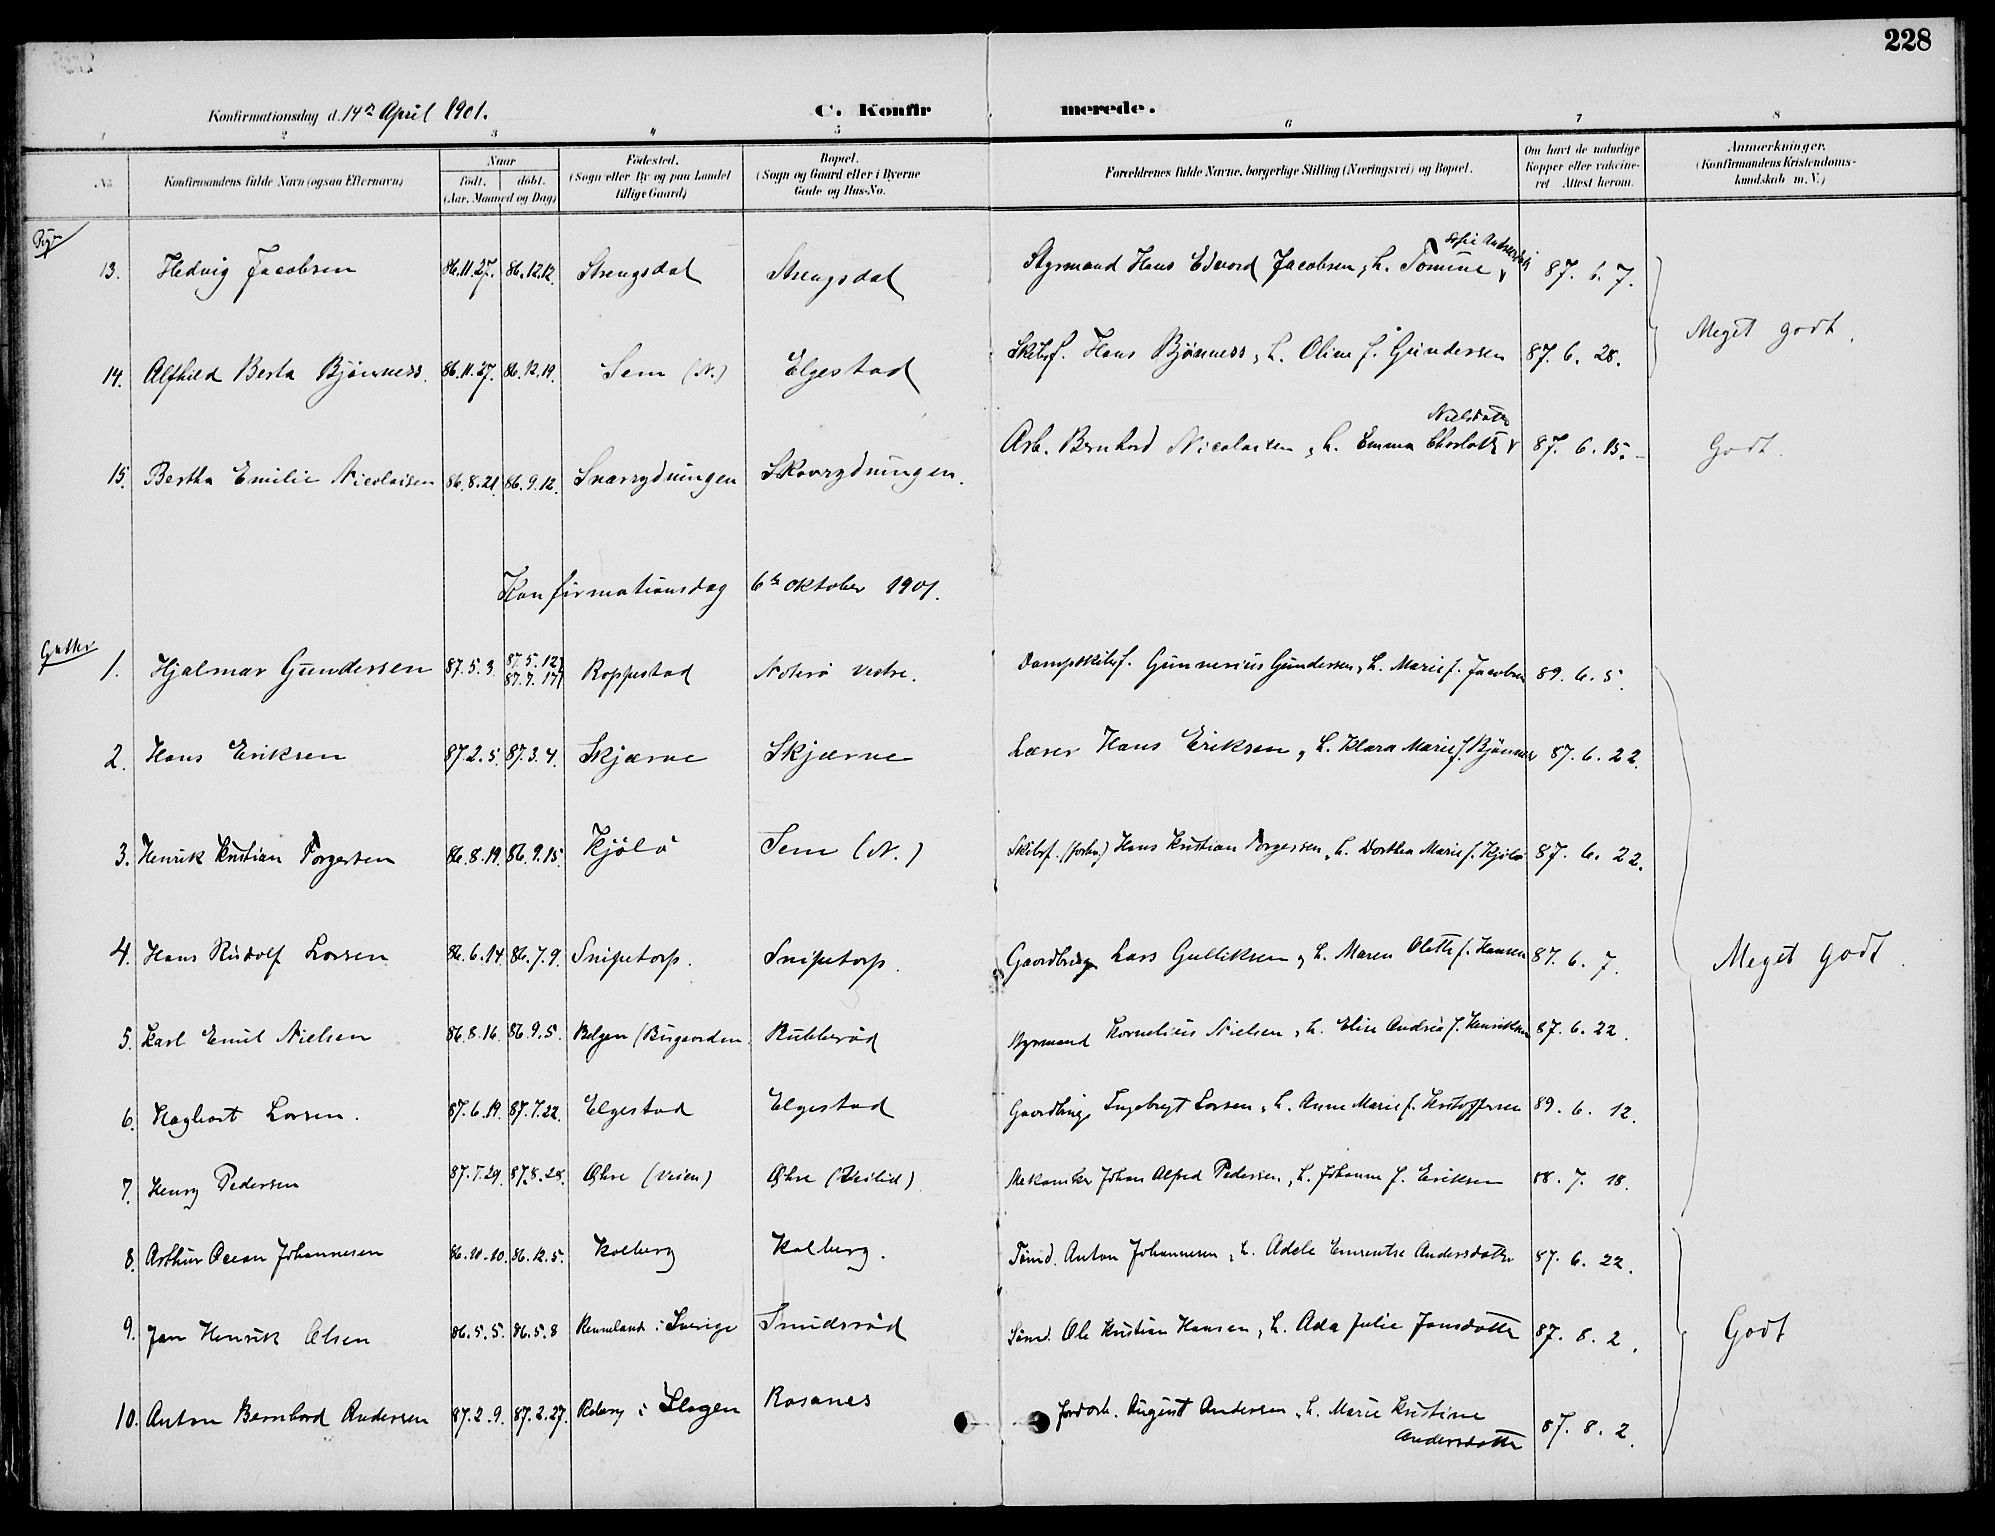 228
Konfirmationsdag d. 14de April 1901.
C. Konfirmerede.
1 2 3 4 5 6 7 8
No.
Konfirmandens fulde Navn (ogsaa Efternavn)
Naar
født. døbt.
(Aar, Maaned og Dag)
Fødested.
(Sogn eller By og paa Landet
tillige Gaard)
Bopæl.
(Sogn og Gaard eller i Byerne
Gade og Hus-No.
Forældrenes fulde Navne, borgerlige Stilling (Næringsvei) og Bopæl.
Om havt de naturlige
Kopper eller vakcine-
ret Attest herom.
Anmærkninger.
(Konfirmandens Kristendoms-
kundskab m. V.)
13. Hedvig Jacobsen 86.11.27. 86.12.12. Strengsdal Strengsdal Styrmand Hans Edvard Jacobsen, h. Tomine Sofie 87. 6. 7.
Meget godt.
14. Alfhild Berta Bjønness. 86.11.27. 86.12.19. Sem (N.) Elgestad Skibsf. Hans Bjønness, h. Oline f. Gundersen 87. 6. 28.
15. Bertha Emilie Nicolaisen 86.8.21. 86.9.12. Snarrydningen Skovrydningen. Arb. Bernhard Nicolaisen, h. Emma Charlotte Nielsdatter 87. 6. 15. Godt.
Konfirmationsdag 6te oktober 1901.
Gutter
1. Hjalmar Gundersen 87.5.3 87.5.12 87.7.17 Roppestad Nøterø vestre. Dampskibsf. Gunnerius Gundersen, h. Marie f. Jacobsen 89. 6. 5.
2. Hans Eriksen 87.2.5. 87.3.4. Skjærve Skjærve Lærer Hans Eriksen, h. Klara Marie f. Bjønness 87. 6. 22.
3. Henrik Kristian Torgersen 86.8.19. 86.9.15. Kjølø Sem (N.) Skibsf. (forhv.) Hans Kristian Torgersen, h. Dorthea Marie f. Kjølø 87. 6. 22.
4. Hans Rudolf Larsen 86.6.14 86.7.9. Snipetorp. Snipetorp. Gaardbrug Lars Gulliksen, h. Maren Olette f. Hansen 87. 6. 7.
Meget godt.
5. Karl Emil Nielsen 86.8.16. 86.9.5. Bolgen (Busgaarden Rubberød Styrmand Kornelius Nielsen, h. Elise Andrea f. Henriksen 87. 6. 22.
6. Hagbart Larsen. 87.6.19. 87.7.22. Elgestad Elgestad Gaardbrug Ingebregt Larsen, h. Anne Marie f. Kristoffersen 89. 6. 12.
7. Henry Pedersen 87.7.29. 87.8.28. Øhre (Veien) Øhre (Veilid) Mekaniker Johan Alfred Pedersen, h. Johanne f. Eriksen 88. 7. 18.
8. Arthur Ocean Johannesen 86.10.10. 86.12.5. Kolberg Kolberg. Tømd. Anton Johannesen, h. Adele Emrentse Andersdatter 87. 6. 22.
9. Jan Henrik Olsen 86.5.5. 86.5.8 i Sverige Smidsrød Sømd. Ole Kristian Hansen, h. Ada Julie Jansdatter 87. 8. 2.
Godt
10. Anton Bernhard Andersen 87.2.9. 87.2.27. i Slagen Rosanes Jordarb. August Andersen, h. Marie Kristine
Andersdatter 87. 8. 2.